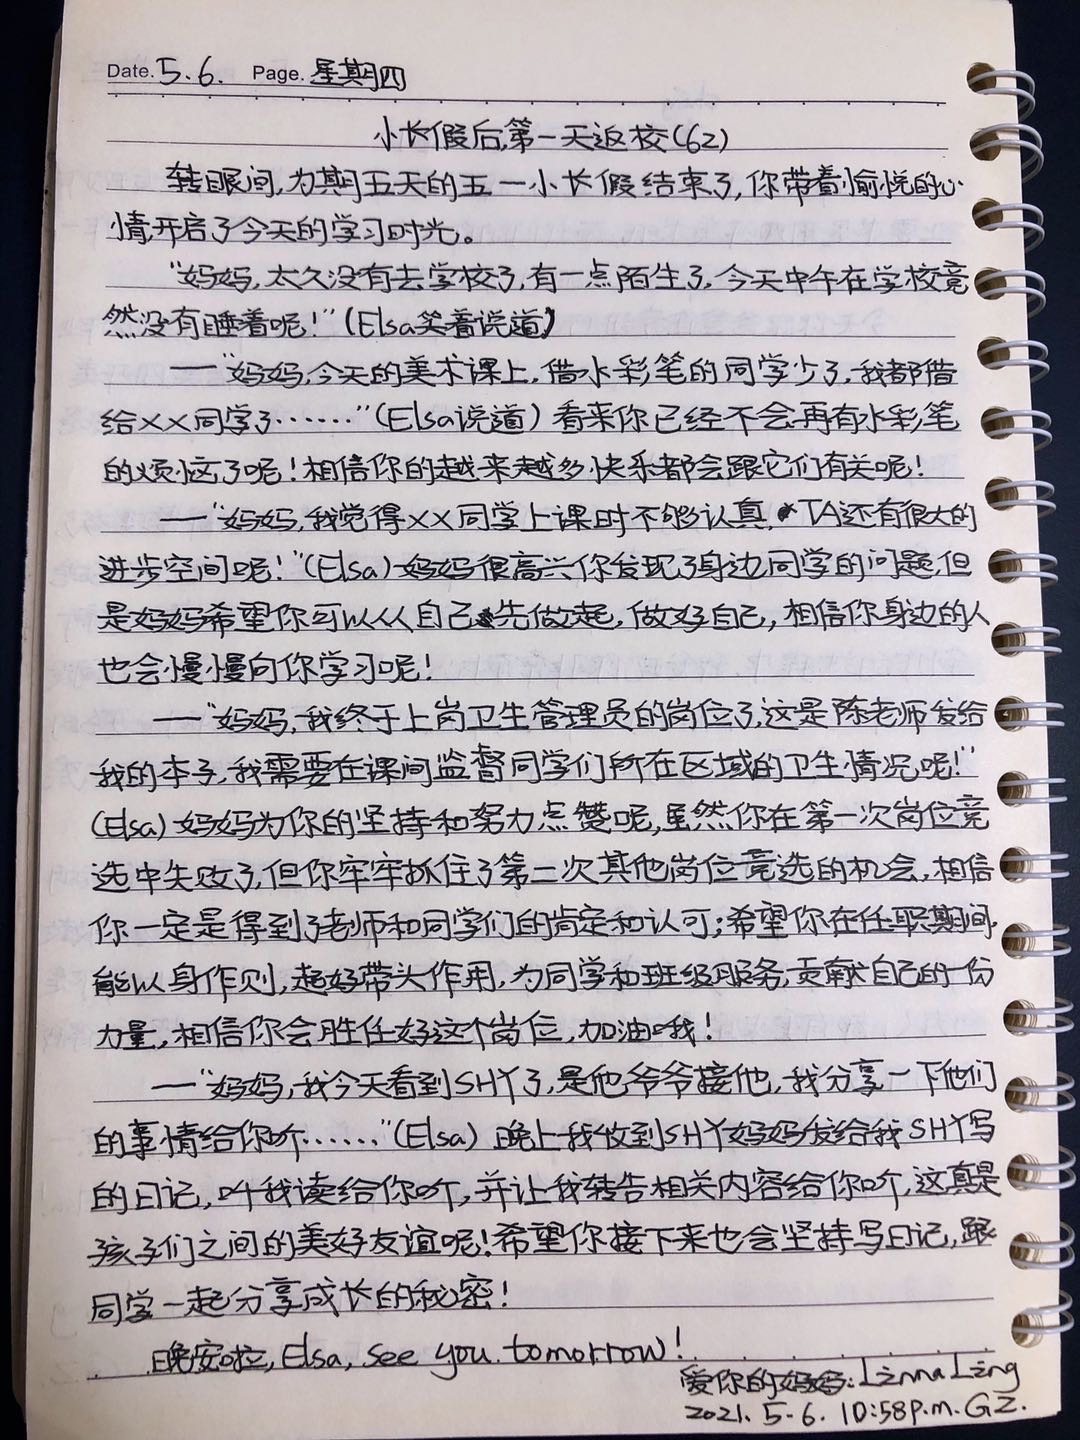 Date. 5.6. Page. 星期四
小长假后,第一天返校(62)
转眼间,为期五天的五一小长假结束了,你带着愉悦的心
情,开启了今天的学习时光。
“妈妈,太久没有去学校了,有一点陌生了,今天中午在学校竟
然没有睡着呢!”(Elsa笑着说道)
—“妈妈,今天的美术课上,借水彩笔的同学少了,我都借
给××同学了……”(Elsa说道)看来你已经不会再有水彩笔
的烦恼了呢!相信你的越来越多快乐都会跟它们有关呢!
—“妈妈,我觉得××同学上课时不够认真,TA还有很大的
进步空间呢!”(Elsa)妈妈很高兴你发现了身边同学的问题,但
是妈妈希望你可以从自己先做起,做好自己,相信你身边的人
也会慢慢向你学习呢!
—“妈妈,我终于上岗卫生管理员的岗位了,这是陈老师发给
我的本子,我需要在课间监督同学们所在区域的卫生情况呢!”
(Elsa)妈妈为你的坚持和努力点赞呢,虽然你在第一次岗位竞
选中失败了,但你牢牢抓住了第二次其他岗位竞选的机会,相信
你一定是得到了老师和同学们的肯定和认可;希望你在任职期间,
能以身作则,起好带头作用,为同学和班级服务,贡献自己的一份
力量,相信你会胜任好这个岗位,加油哦!
—“妈妈,我今天看到SHY了,是他爷爷接他,我分享一下他们
的事情给你听……”(Elsa)晚上我收到SHY妈妈发给我SHY写
的日记,叫我读给你听,并让我转告相关内容给你听,这真是
孩子们之间的美好友谊呢!希望你接下来也会坚持写日记,跟
同学一起分享成长的秘密!
晚安啦,Elsa,see you tomorrow!
爱你的妈妈:Linna Ling
2021.5.6.10:58p.m.GZ.